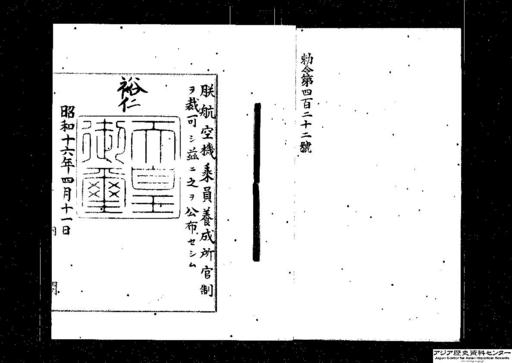 勅令第四百二十二號
朕航空機乗員養成所官制
ヲ裁可シ茲ニ之ヲ公布セシム
裕仁
天皇
御璽
昭和十六年四月十一日
アジア歴史資料センター
Japan Center for Asian Historical Records